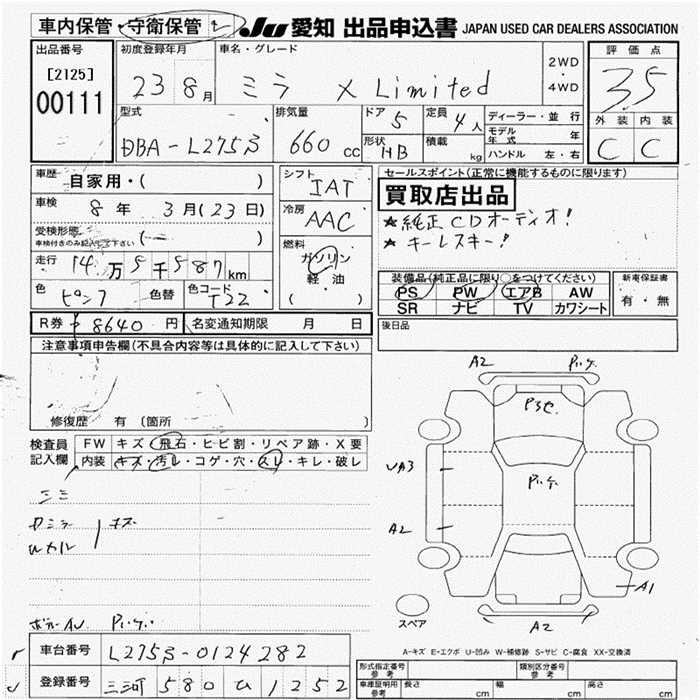 車内保管・守衛保管
JU 愛知 出品申込書 JAPAN USED CAR DEALERS ASSOCIATION
出品番号 初度登録年月 車名・グレード 評価点
[2125] 23 8月 ミラ X Limited 2WD・4WD 3.5
00111
型式 排気量 ドア 定員 ディーラー・並行 外装 内装
DBA-L275S 660cc 5 4人 モデル年式 年 C C
形状 HB 積載 kg ハンドル 左・右
車歴 自家用・( ) シフト IAT セールスポイント(正常に機能するものに限ります)
買取店出品
車検 8年 3月(23日) 冷房 AAC ★純正CDオーディオ!
受検形態 ( ) ★キーレスキー!
車検付きのみ記入して下さい
燃料 ガソリン 軽油 ( )
走行 14万5千587km 装備品(純正品に限り○をつけてください) 新車保証書
PS PW エアB AW 有・無
色 ピンク 色替 色コード T22 SR ナビ TV カワシート
R券 8640円 名変通知期限 月 日 後日品
注意事項申告欄(不具合内容等は具体的に記入して下さい)
修復歴 有 〔箇所
検査員 FW キズ・飛石・ヒビ割・リペア跡・X要
記入欄 内装 キズ・汚レ・コゲ・穴・スレ・キレ・破レ
A2
A3
A2
A1
A2
スペア
A-キズ E-エクボ U-凹み W-補修跡 S-サビ C-腐食 XX-交換済
車台番号 L275S-0124282 形式指定番号 参考 類別区分番号 参考
登録番号 三河 580 ひ 1252 車庫証明用 参考 長さ cm 幅 cm 高さ cm